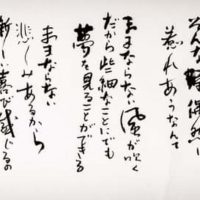 そんな偶然に
惹れあうなんて
ままならない風が吹く
だから些細なことにでも
夢を見ることができる
ままならない
悲しみあるから
新しい喜び感じるの